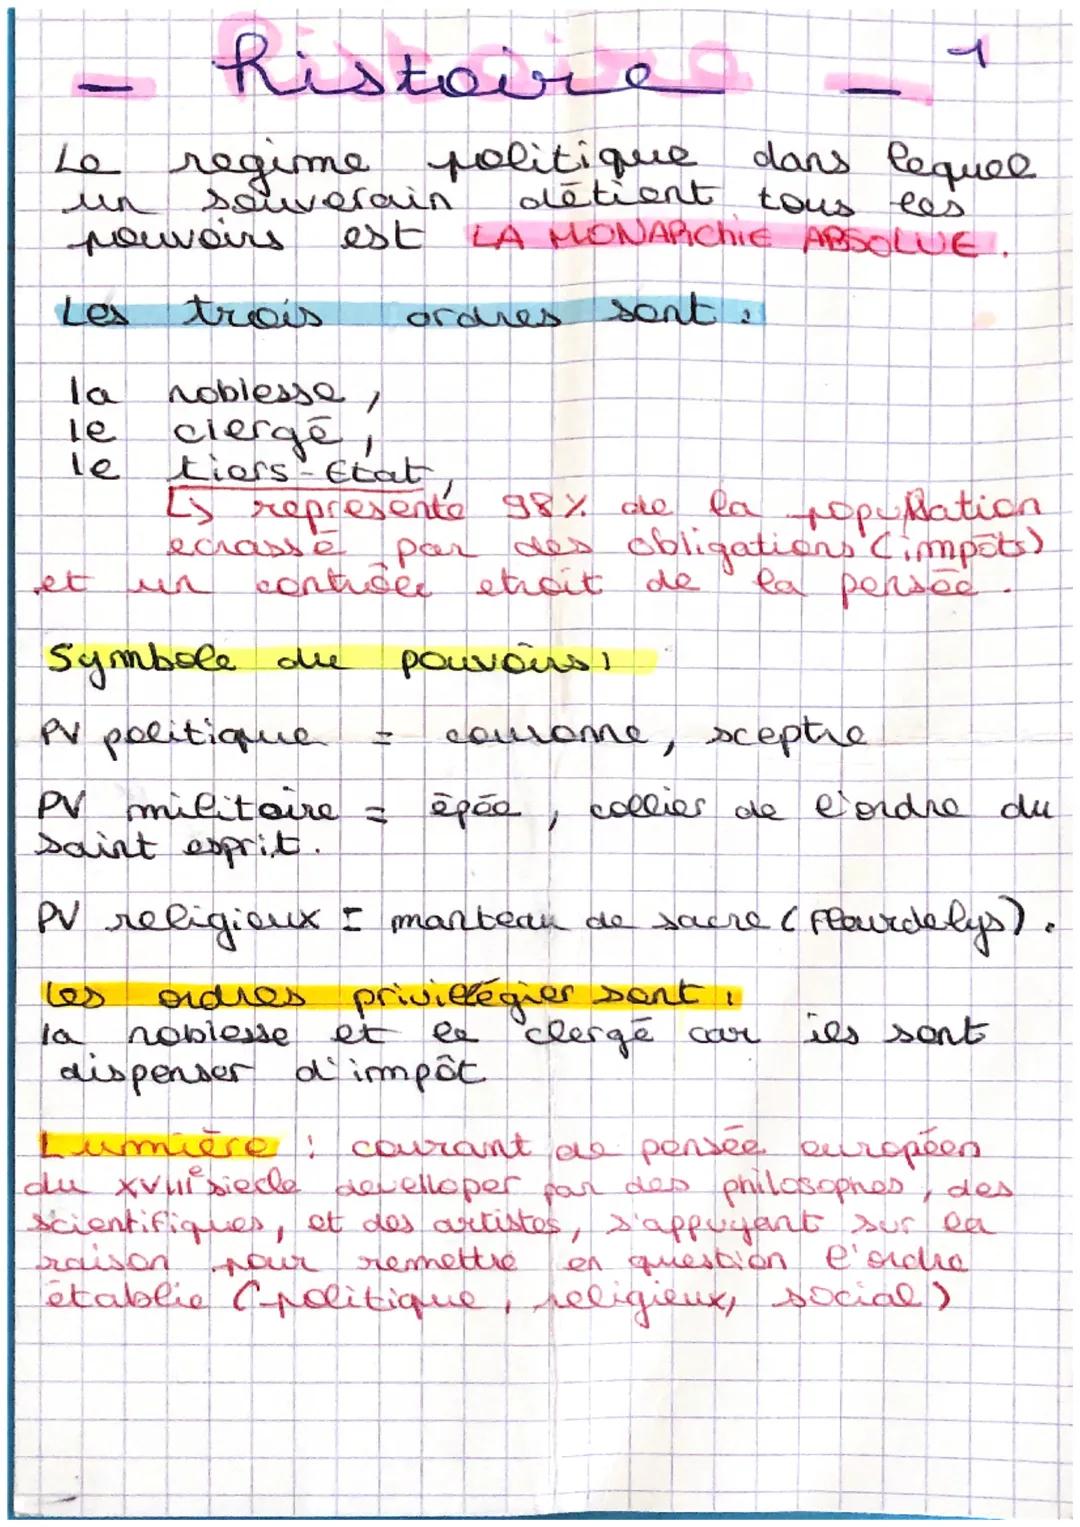 - histoire - 1
Le regime politique dans lequel
un souverain détient tous les
pouvoirs est LA MONARChiE ABSOLUE.
Les trois ordres sont :
la noblesse,
le clergé,
le tiers-Etat,
↳ représente 98% de la population
ecrassé par des obligations (impôts)
et un contrôle etroit de la pensée.
Symbole du pouvoirs :
PV politique = couronne, sceptre
PV militaire = épée, collier de l'ordre du
saint esprit.
PV religieux = manteau de sacre (fleurdelys).
Les ordres privillégier sont :
la noblesse et le clergé car ils sont
dispenser d'impôt
Lumière : courant de pensée européen
du XVIIIe siecle develloper par des philosophes, des
scientifiques, et des artistes, s'appuyant sur la
raison pour remettre en question l'ordre
établie (politique, religieux, social)